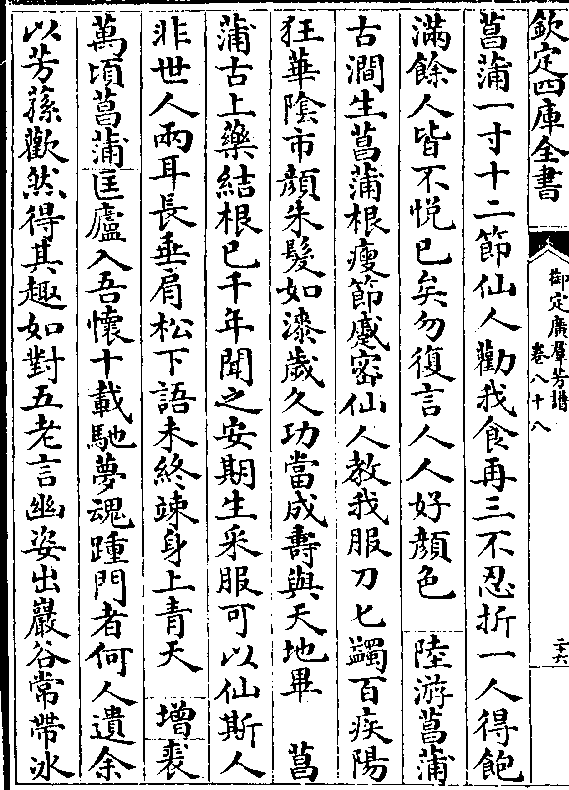 欽定四庫全書
御定廣羣芳譜
卷八十八
二十六
菖蒲一寸十二節仙人勸我食再三不忍折一人得飽
滿餘人皆不悦已矣勿復言人人好顔色 陸游菖蒲
古澗生菖蒲根瘦節蹙密仙人教我服刀匕蠲百疾陽
狂華陰市顔朱髮如漆歲久功當成壽與天地畢 菖
蒲古上藥結根已千年聞之安期生采服可以仙斯人
非世人兩耳長垂肩松下語未終竦身上青天 增裘
萬頃菖蒲匡廬入吾懷十載馳夢魂踵門者何人遺余
以芳蓀歡然得其趣如對五老言幽姿出巖谷常帶冰